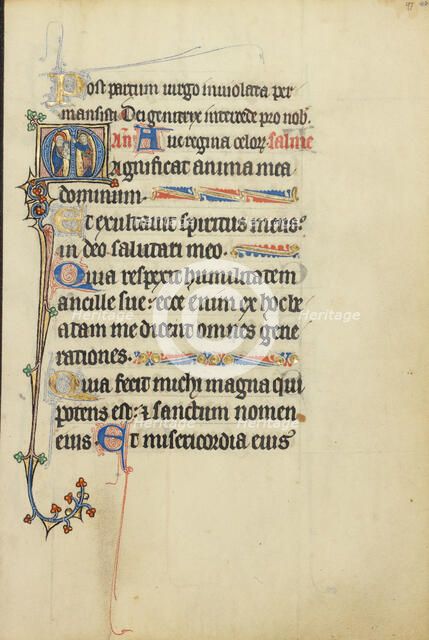 Post partum virgo inviolata per
mansisti Dei genitrix intercede pro nob.
an Ave regina celoꝝ. salme
Magnificat anima mea
dominum.
Et exultavit spiritus meus:
in deo salutari meo.
Quia respexit humilitatem
ancille sue: ecce enim ex hoc be
atam me dicent omnes gene
rationes.
Quia fecit michi magna qui
potens est: & sanctum nomen
eius. Et misericordia eius